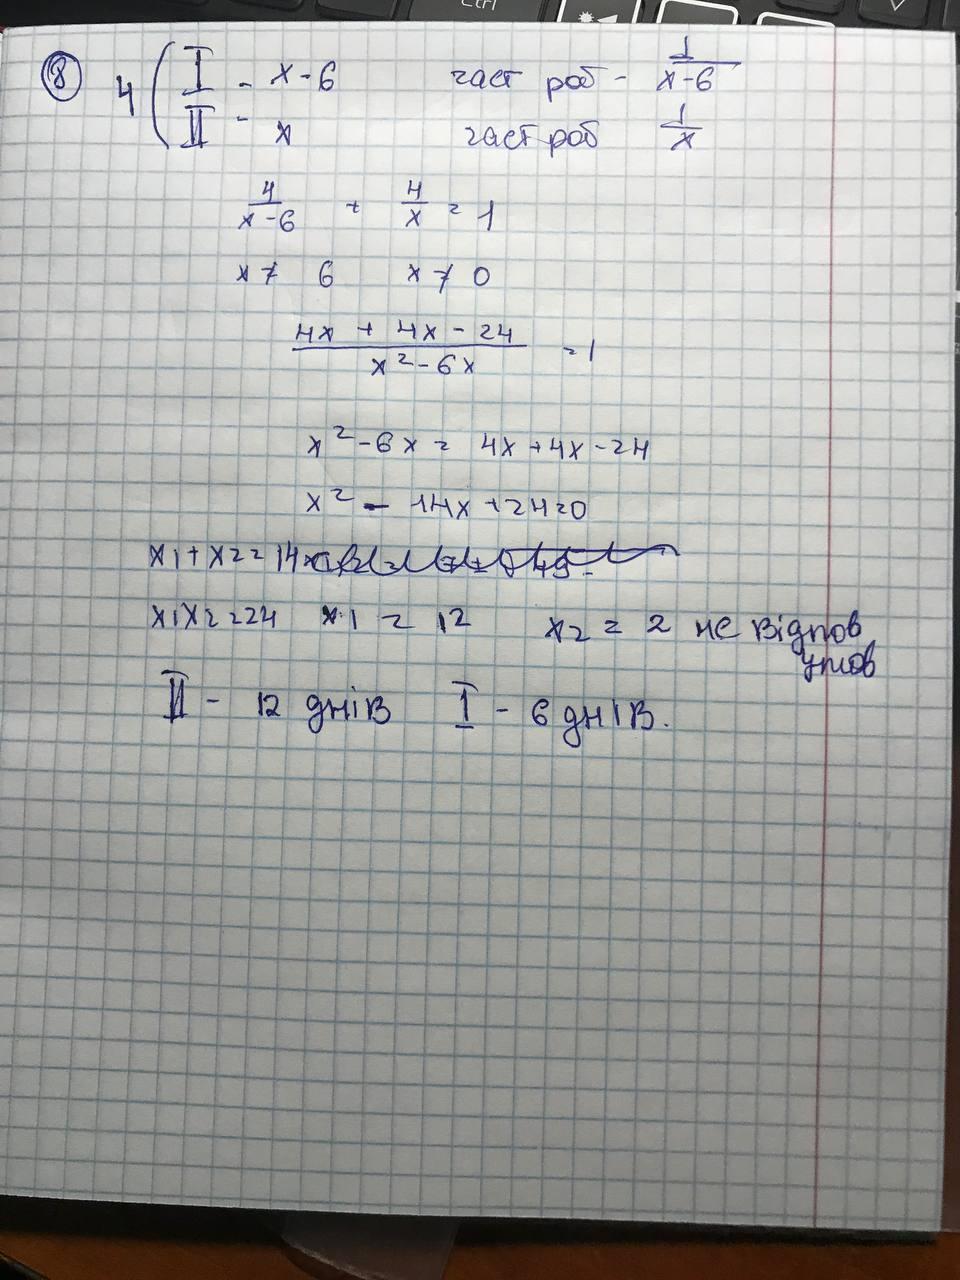 8 4 ( I - x-6 част роб - 1/(x-6)
II - x част роб 1/x
4/(x-6) + 4/x = 1
x ≠ 6 x ≠ 0
(4x + 4x - 24)/(x² - 6x) = 1
x² - 6x = 4x + 4x - 24
x² - 14x + 24 = 0
x1 + x2 = 14
x1x2 = 24 x1 = 12 x2 = 2 не відпов
умов
II - 12 днів I - 6 днів.
Ctrl